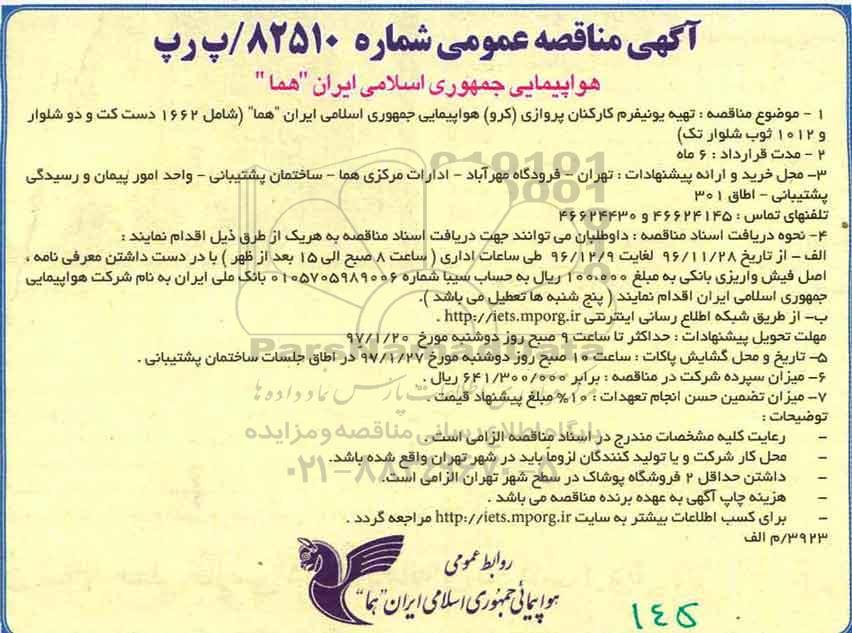 آگهی مناقصه عمومی شماره ۸۲۵۱۰/پ رپ
هواپیمایی جمهوری اسلامی ایران "هما"
۱ - موضوع مناقصه : تهیه یونیفرم کارکنان پروازی (کرو) هواپیمایی جمهوری اسلامی ایران "هما" (شامل ۱۶۶۲ دست کت و دو شلوار
و ۱۰۱۲ ثوب شلوار تک)
۲ - مدت قرارداد : ۶ ماه
۳- محل خرید و ارائه پیشنهادات : تهران - فرودگاه مهرآباد - ادارات مرکزی هما - ساختمان پشتیبانی - واحد امور پیمان و رسیدگی
پشتیبانی - اطاق ۳۰۱
تلفنهای تماس : ۴۶۶۲۴۱۴۵ و ۴۶۶۲۴۴۳۰
۴- نحوه دریافت اسناد مناقصه : داوطلبان می توانند جهت دریافت اسناد مناقصه به هریک از طرق ذیل اقدام نمایند :
الف - از تاریخ ۹۶/۱۱/۲۸ لغایت ۹۶/۱۲/۹ طی ساعات اداری ( ساعت ۸ صبح الی ۱۵ بعد از ظهر ) با در دست داشتن معرفی نامه ،
اصل فیش واریزی بانکی به مبلغ ۱۰۰،۰۰۰ ریال به حساب سیبا شماره ۰۱۰۵۷۰۵۹۸۹۰۰۶ بانک ملی ایران به نام شرکت هواپیمایی
جمهوری اسلامی ایران اقدام نمایند ( پنج شنبه ها تعطیل می باشد ).
ب- از طریق شبکه اطلاع رسانی اینترنتی http://iets.mporg.ir .
مهلت تحویل پیشنهادات : حداکثر تا ساعت ۹ صبح روز دوشنبه مورخ ۹۷/۱/۲۰
۵- تاریخ و محل گشایش پاکات : ساعت ۱۰ صبح روز دوشنبه مورخ ۹۷/۱/۲۷ در اطاق جلسات ساختمان پشتیبانی .
۶- میزان سپرده شرکت در مناقصه : برابر ۶۴۱/۳۰۰/۰۰۰ ریال .
۷- میزان تضمین حسن انجام تعهدات : ۱۰% مبلغ پیشنهاد قیمت .
توضیحات :
- رعایت کلیه مشخصات مندرج در اسناد مناقصه الزامی است .
- محل کار شرکت و یا تولید کنندگان لزوماً باید در شهر تهران واقع شده باشد.
- داشتن حداقل ۲ فروشگاه پوشاک در سطح شهر تهران الزامی است.
- هزینه چاپ آگهی به عهده برنده مناقصه می باشد .
- برای کسب اطلاعات بیشتر به سایت http://iets.mporg.ir مراجعه گردد .
۳۹۲۳/م الف
روابط عمومی
هواپیمائی جمهوری اسلامی ایران "هما"
۱۴۵
ParsNamadData
پایگاه اطلاع رسانی مناقصه و مزایده